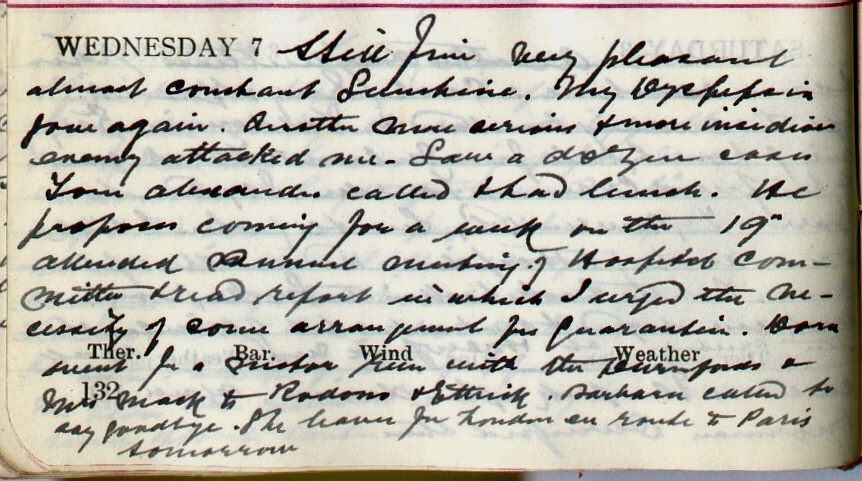 WEDNESDAY 7 Still fine very pleasant
almost constant Sunshine. My Dyspepsia
gone again. Another more serious & more insidious
enemy attacked me - Saw a dozen cases
Tom Alexander called & had lunch. He
proposes coming for a week on the 19th
attended Annual meeting of Hospital Com-
mittee & read report in which I urged the ne-
cessity of some arrangement for Quarantine. Dora
Ther. Bar. Wind Weather
went for a motor run with the &
132
Mrs Mack to & Ettrick. Barbara called to
say goodbye. She leaves for London en route to Paris
tomorrow